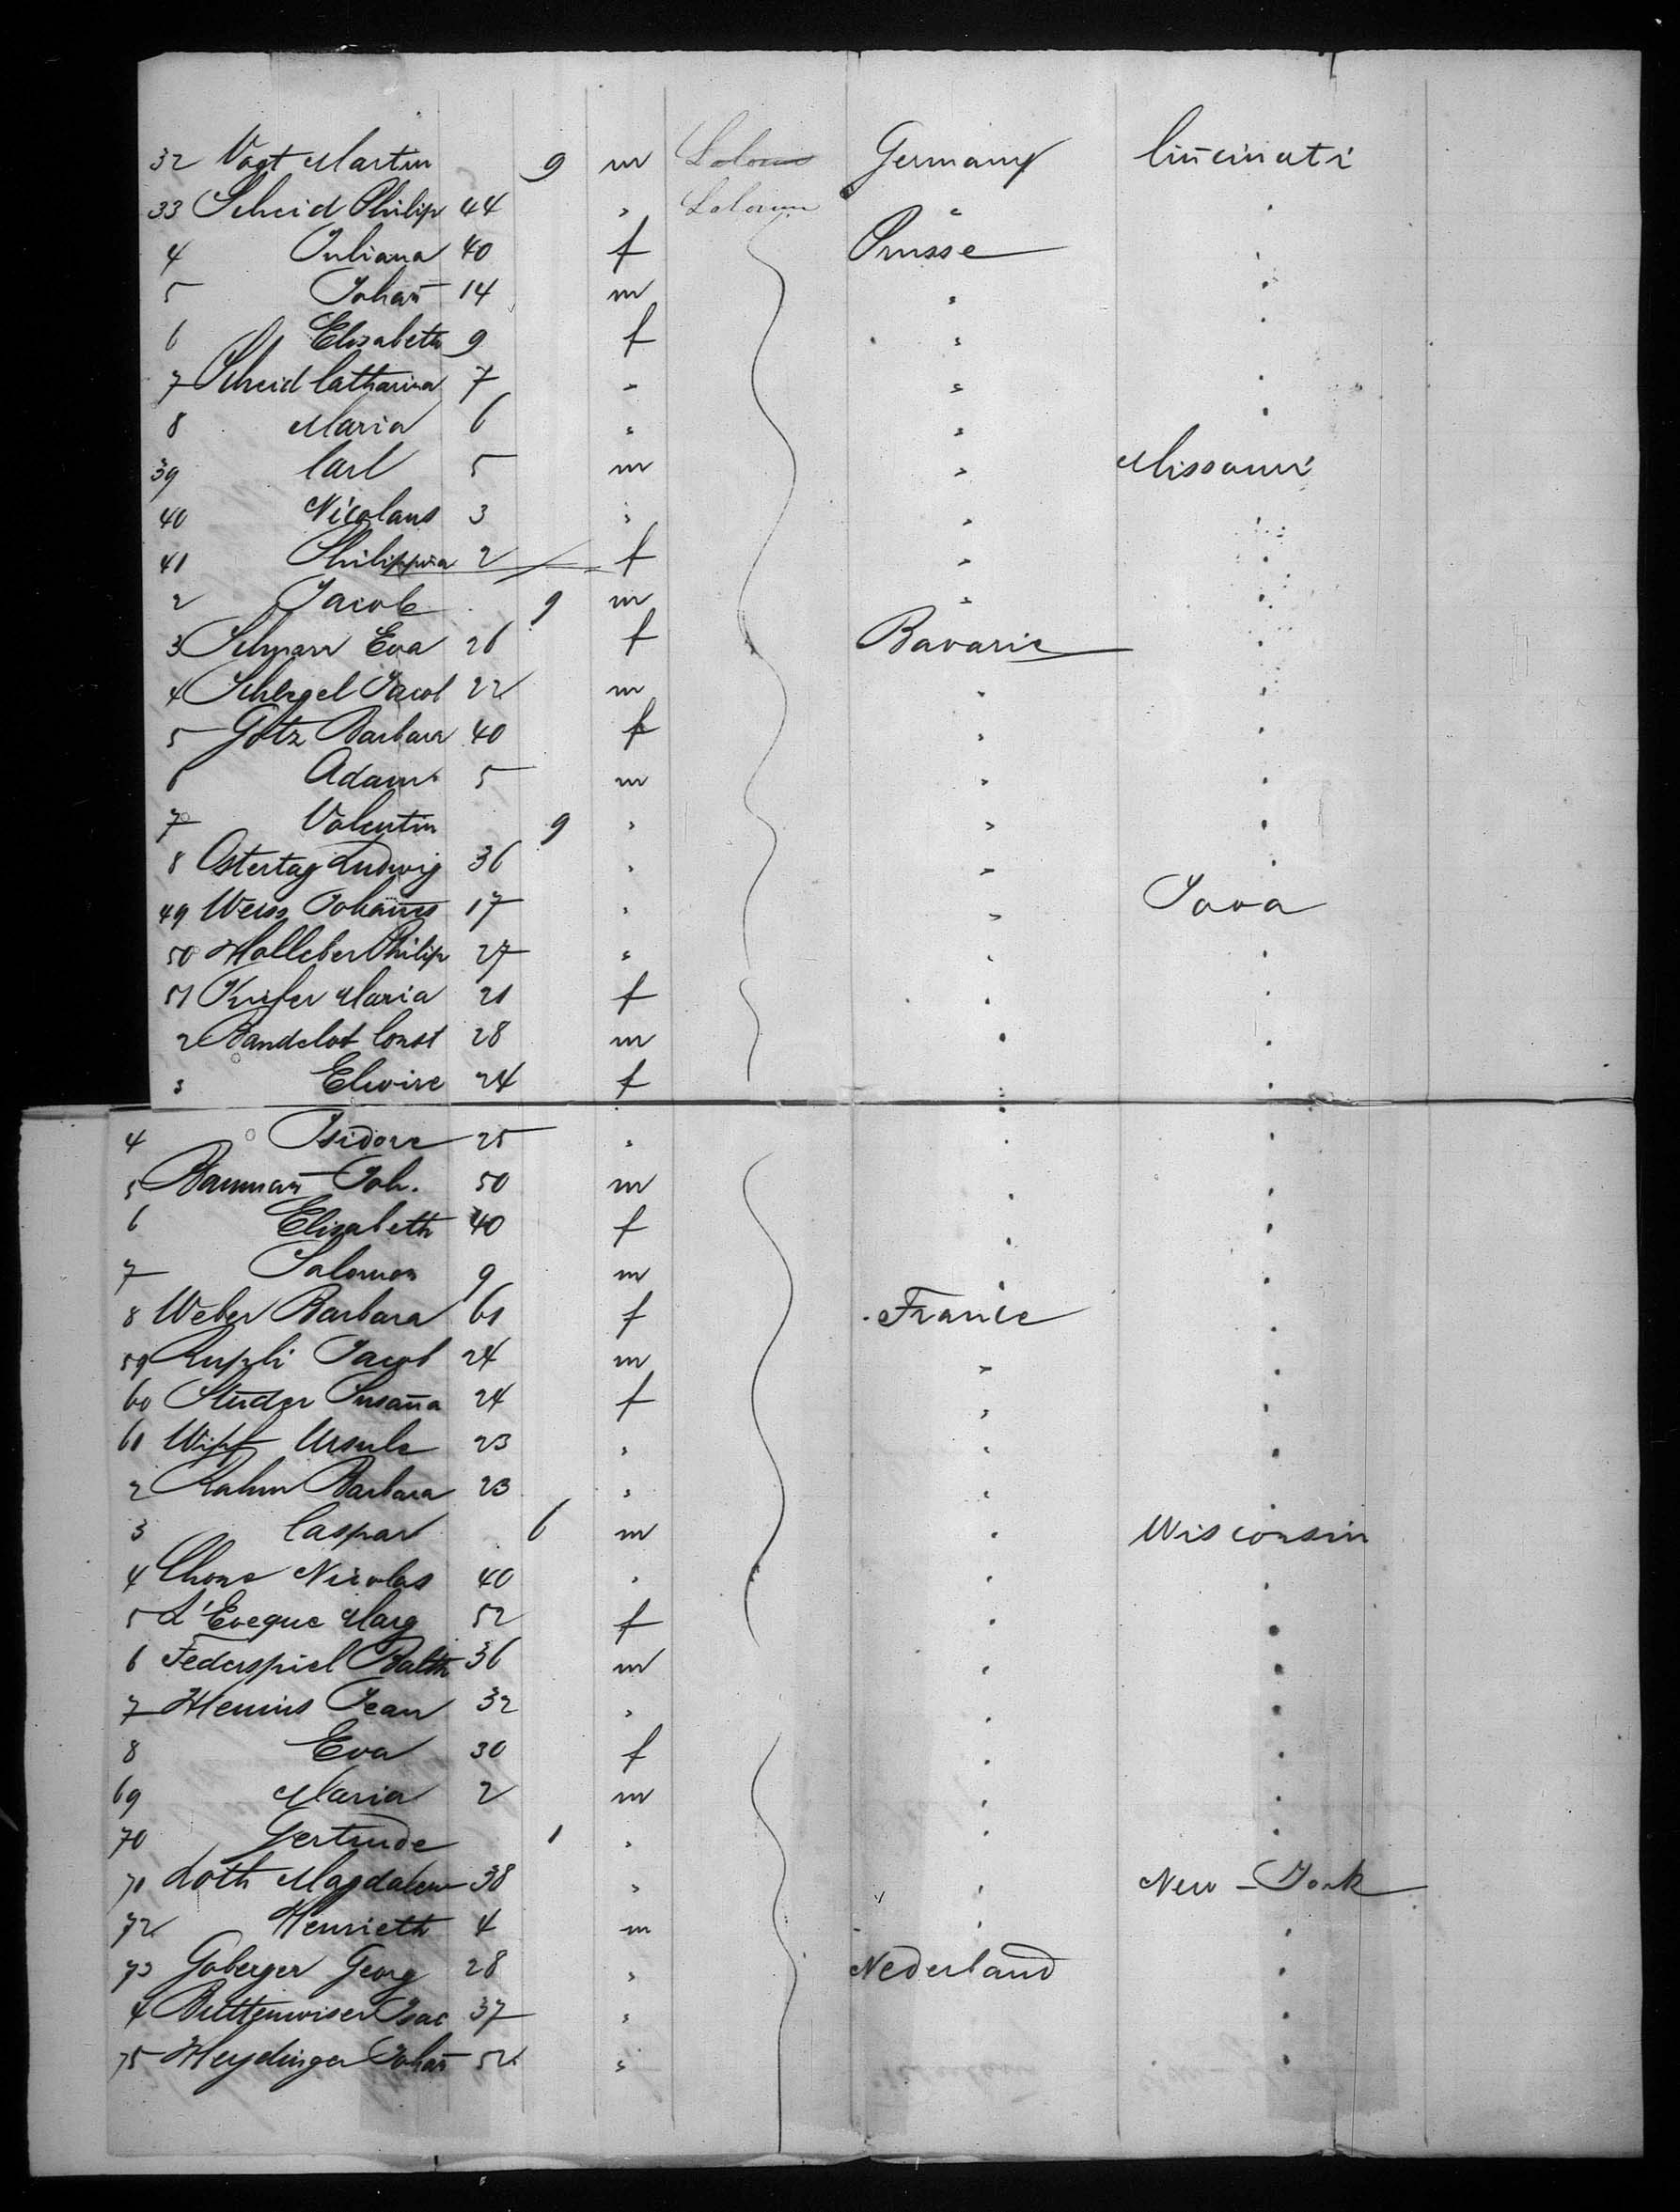 32 Vogt Martin 9 m Germany Cincinati
33 Scheid Philip 44 " "
4 Juliana 40 f Prusse "
5 Johan̄ 14 m " "
6 Elisabeth 9 f " "
7 Scheid Catharina 7 " " "
8 Maria 6 " " "
39 Carl 5 m " Missouri
40 Nicolaus 3 " " "
41 Philippina 2 f " "
2 Jacob 9 m " "
3 Eva 26 f Bavarie "
4 Schlegel Jacob 22 m " "
5 Götz Barbara 40 f " "
6 Adam 5 m " "
7 Valentin 9 " " "
8 Ostertag Ludwig 36 " " "
49 Weiss Johan̄es 17 " " Iova
50 Holleber Philip 27 " " "
51 Kufer Maria 21 f " "
2 Bandelot Const 28 m " "
3 Elwire 24 f " "
4 Isidore 25 " " "
5 Bauman̄ Joh. 50 m " "
6 Elisabeth 40 f " "
7 Salomon 9 m " "
8 Weber Barbara 61 f France "
59 Rupli Jacob 24 m " "
60 Studer Susan̄a 24 f " "
61 Wipf Ursule 23 " " "
2 Rahm Barbara 23 " " "
3 Caspar 6 m " Wisconsin
4 Chone Nicolas 40 " " "
5 L'Eveque Marg 52 f " "
6 Federspiel Balth 36 m " "
7 Hemius Jean 32 " " "
8 Eva 30 f " "
69 Maria 2 m " "
70 Gertrude 1 " " "
71 Loth Magdalena 38 " " New-York
72 Henrieth 4 m " "
73 Goberger Georg 28 " Nederland "
4 Buttenwiser Isac 37 " "
75 Heydinger Johan̄ 52 " "